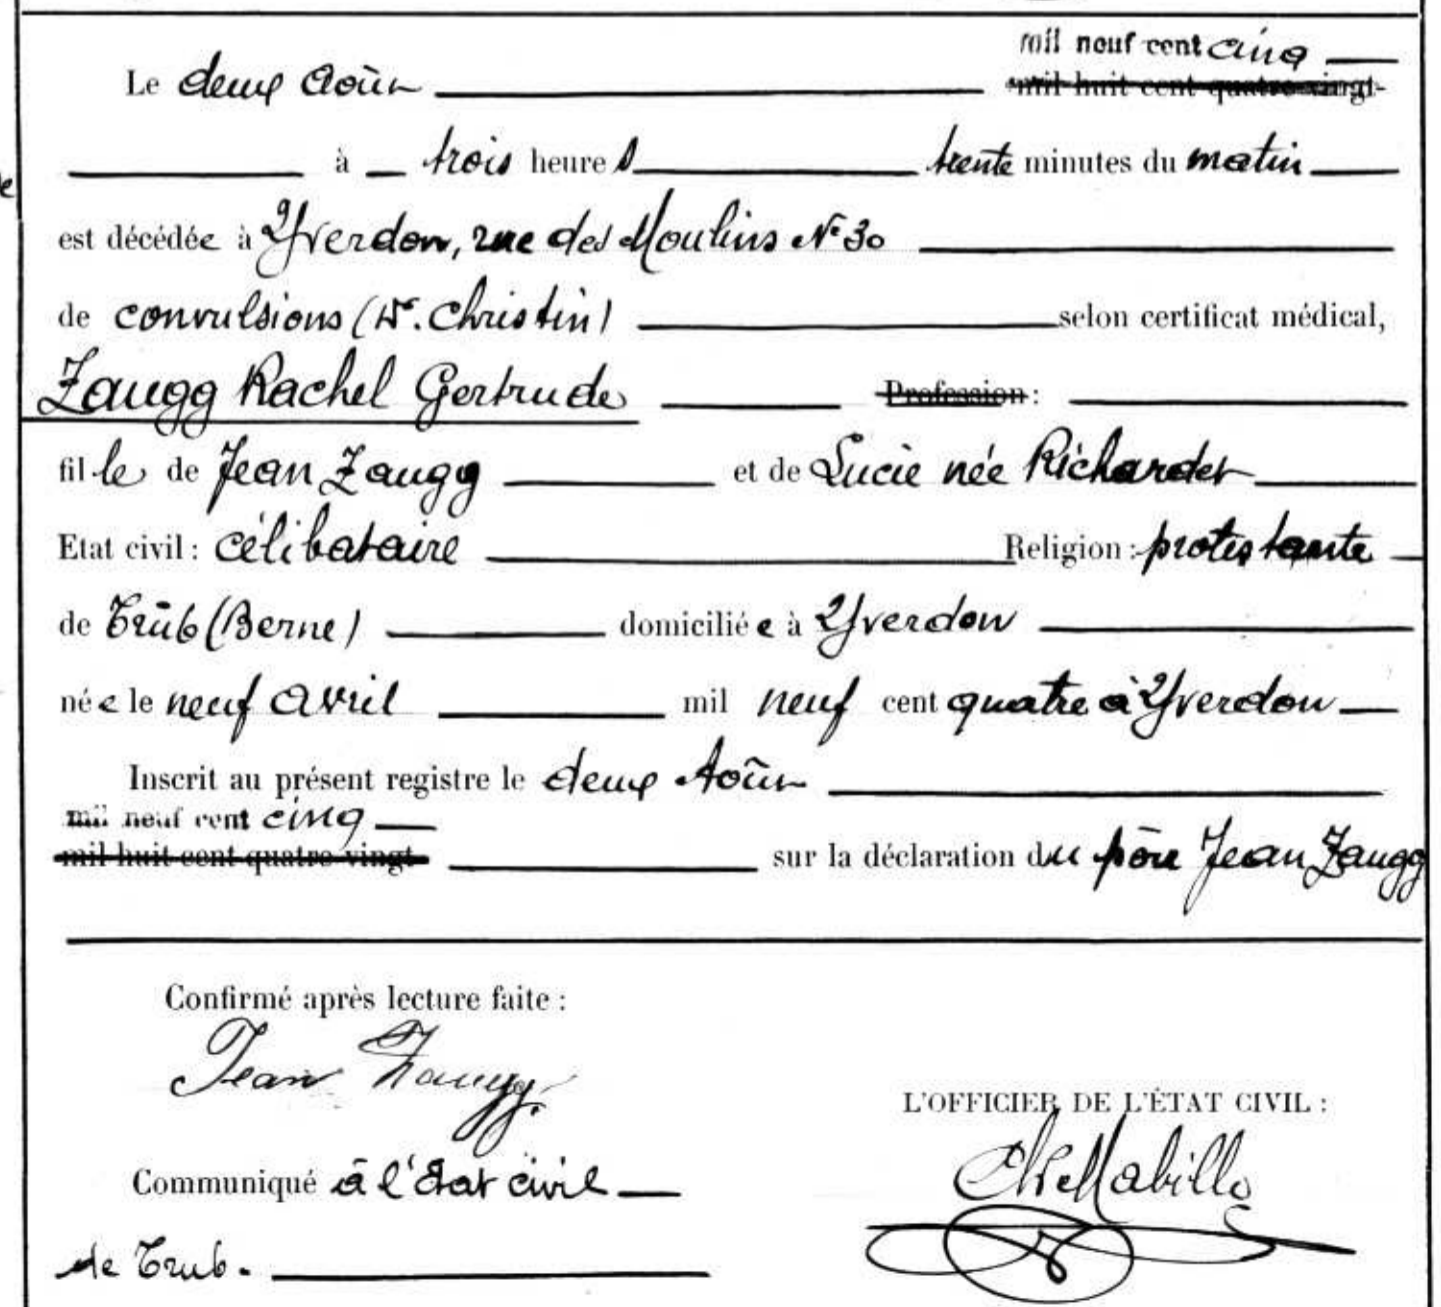 mil neuf cent cinq
Le deux Août mil huit cent quatre-vingt-
à trois heures trente minutes du matin
est décédée à Yverdon, rue des Moulins No 30
de convulsions (Dr. Christin) selon certificat médical,
Zaugg Rachel Gertrude Profession :
fille de Jean Zaugg et de Lucie née Richardet
Etat civil : célibataire Religion : protestante
de Trüb (Berne) domiciliée à Yverdon
née le neuf avril mil neuf cent quatre à Yverdon
Inscrit au présent registre le deux Août
mil neuf cent cinq
mil huit cent quatre-vingt- sur la déclaration du père Jean Zaugg
Confirmé après lecture faite :
Jean Zaugg.
L'OFFICIER DE L'ÉTAT CIVIL :
Communiqué à l'Etat civil
de Trub.